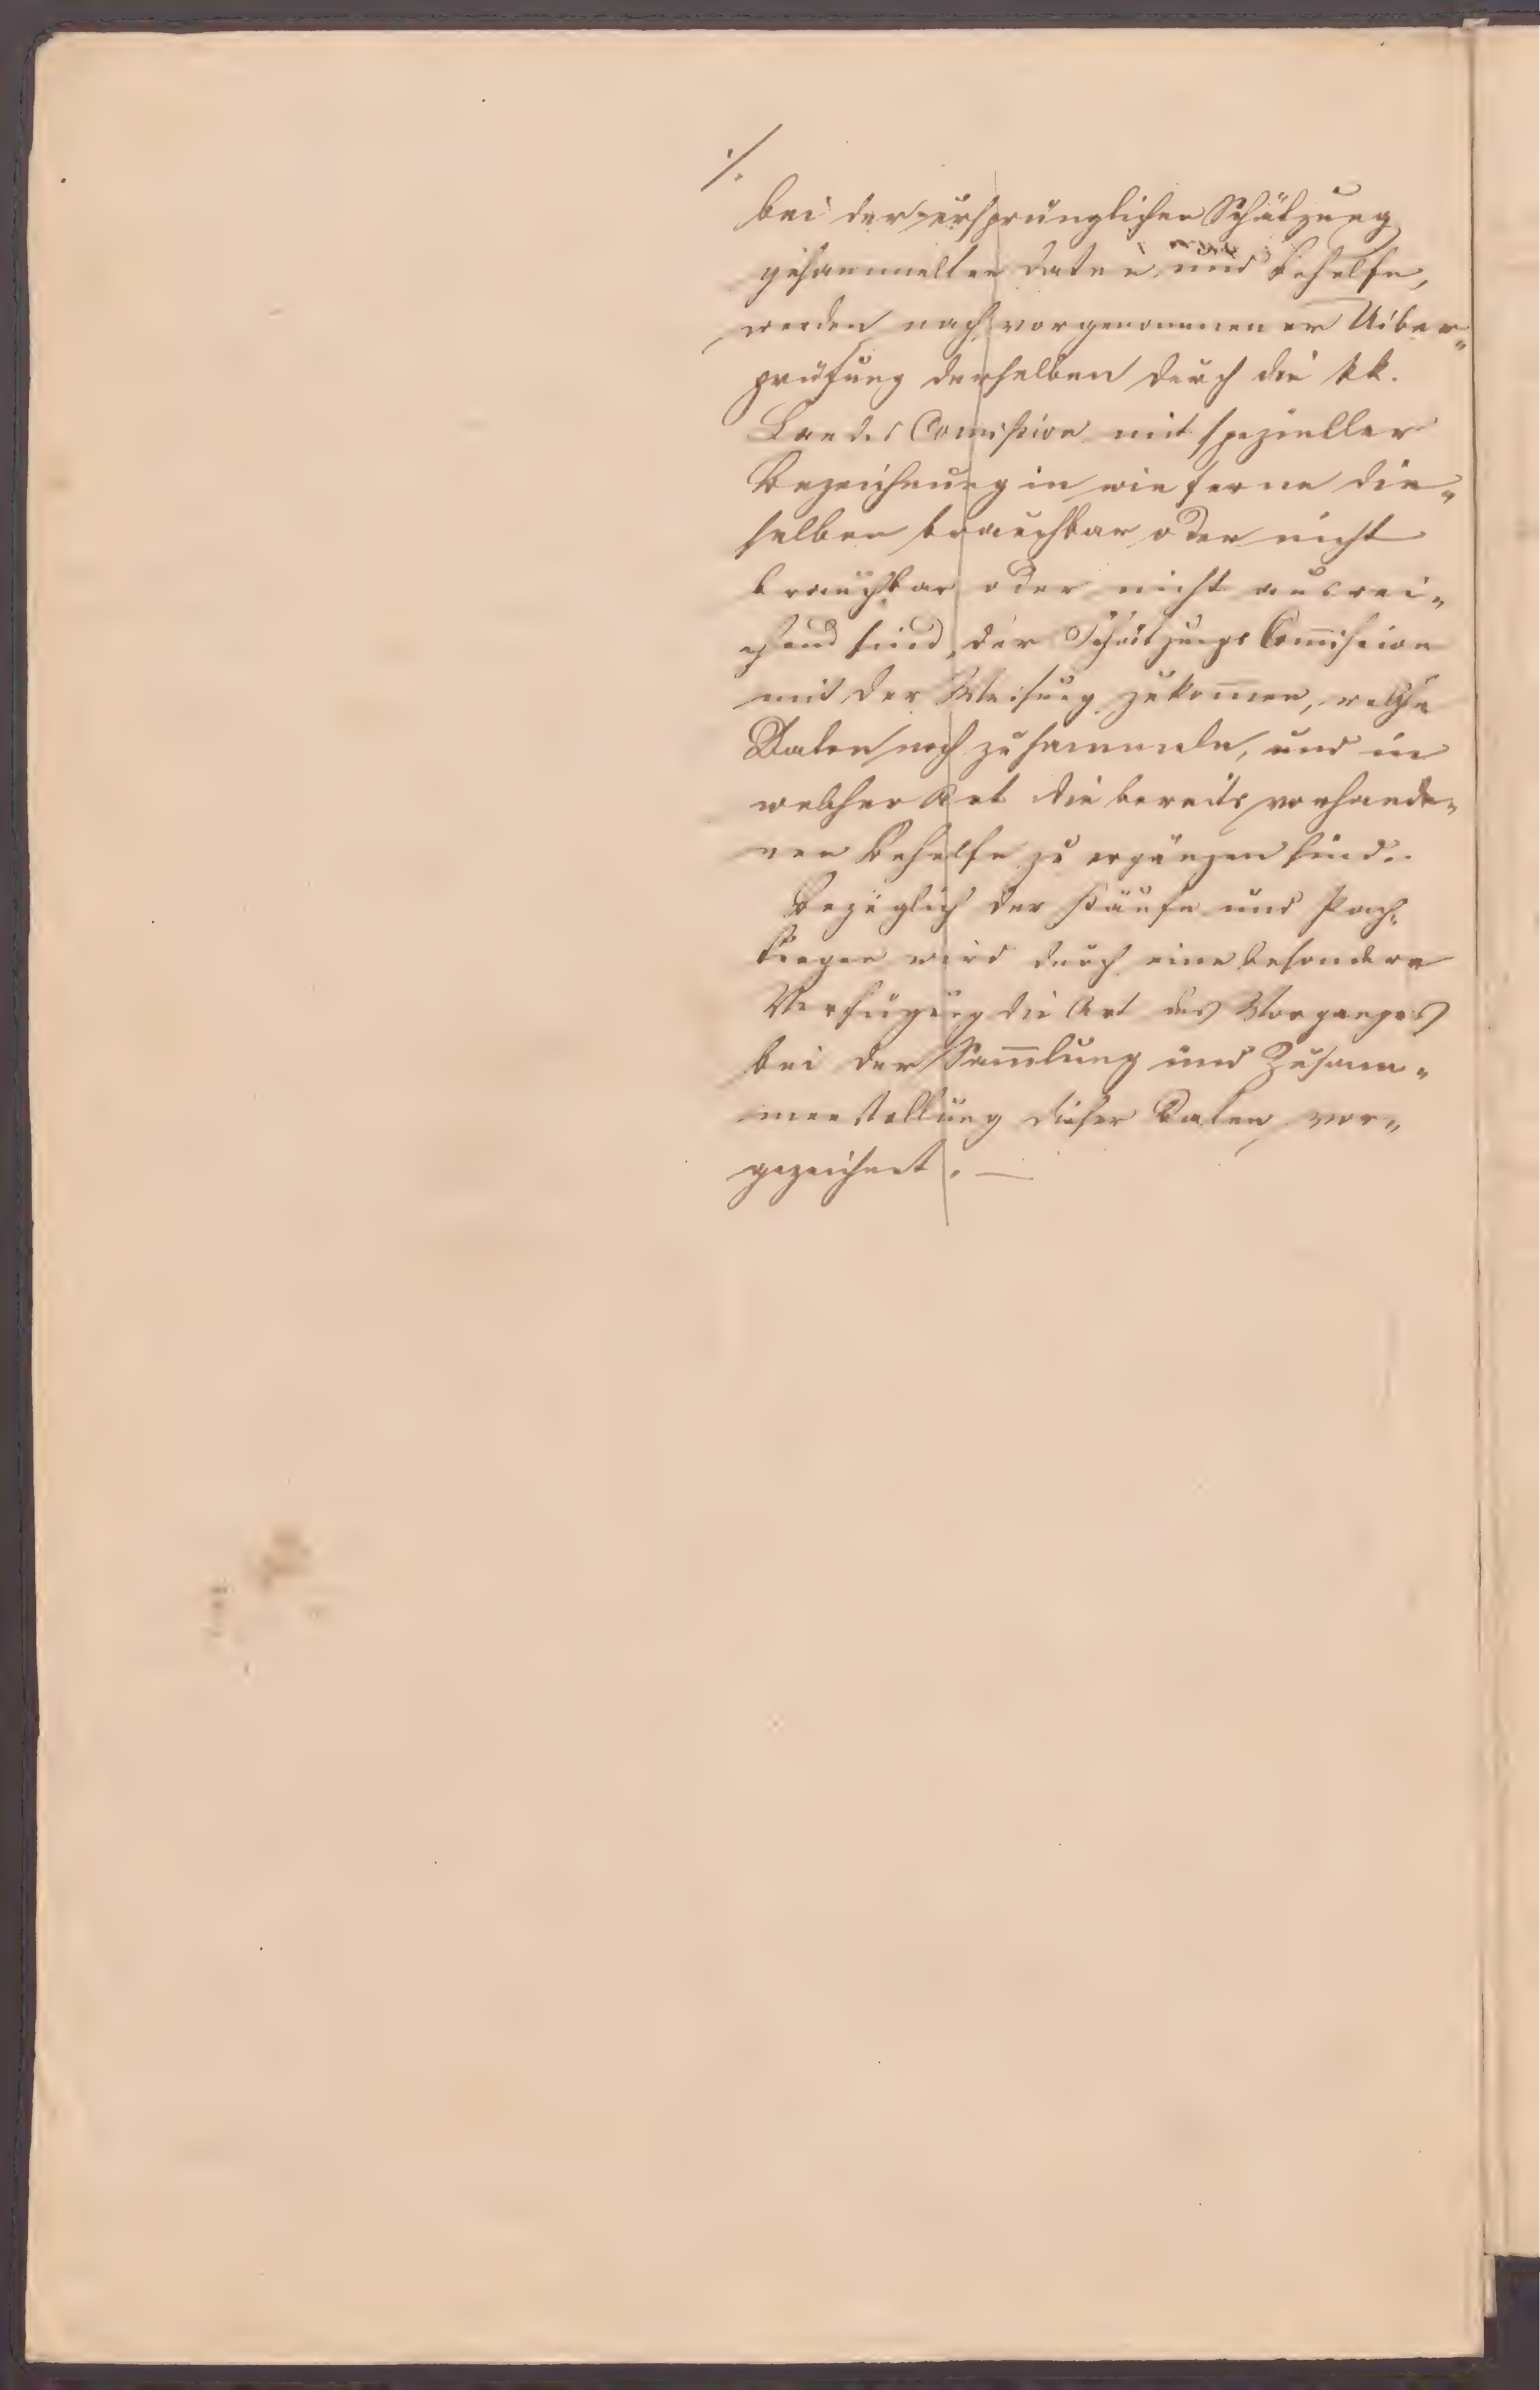 ./.
bei der ursprünglichen Schätzung
gesammelten Daten und Behelfe,
werden nach vorgenommener Uiber„
prüfung derselben durch die kk.
Landes Comißion mit spezieller
Bezeichnung in wie ferne die„
selben brauchbar oder nicht
brauchbar oder nicht ausrei„
chend sind, der Schätzungs Com̅ission
mit der Weisung zukom̅en, welche
Daten noch zu sammeln, und in
welcher Art die bereits vorhande„
nen Behelfe zu ergänzen sind.
Bezüglich der Käufe und Pach„
tungen wird durch eine besondere
Verfügung die Art des Vorganges
bei der Sam̅lung und Zusam„
menstellung dieser Daten vor„
gezeichnet. —